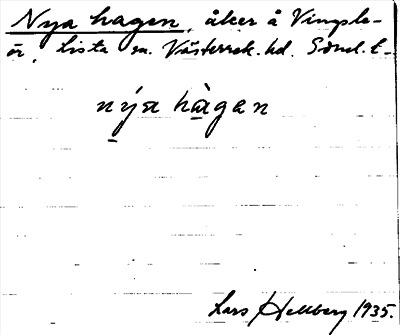 Nya hagen, åker å Vingsle-
ör, Lista sn. Västerrek. hd. Sdml. l.
nýa hàgen
Lars Hellberg 1935.